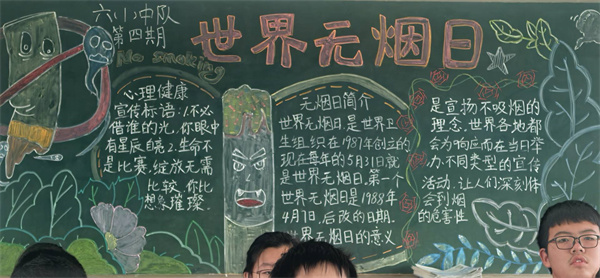 六(1)中队
第四期
世界无烟日
No smoking
心理健康
宣传标语:1.不必
借谁的光,你眼中
有星辰自亮2.生命不
是比赛,绽放无需
比较,你比
想象璀璨。
无烟日简介
世界无烟日,是世界卫
生组织在1987年创立的
现在每年的5月31日就
是世界无烟日。第一个
世界无烟日是1988年
4月7日,后改的日期。
世界无烟日的意义
是宣扬不吸烟的
理念.世界各地都
会为响应而在当日举
办不同类型的宣传
活动,让人们深刻体
会到烟
的危害性